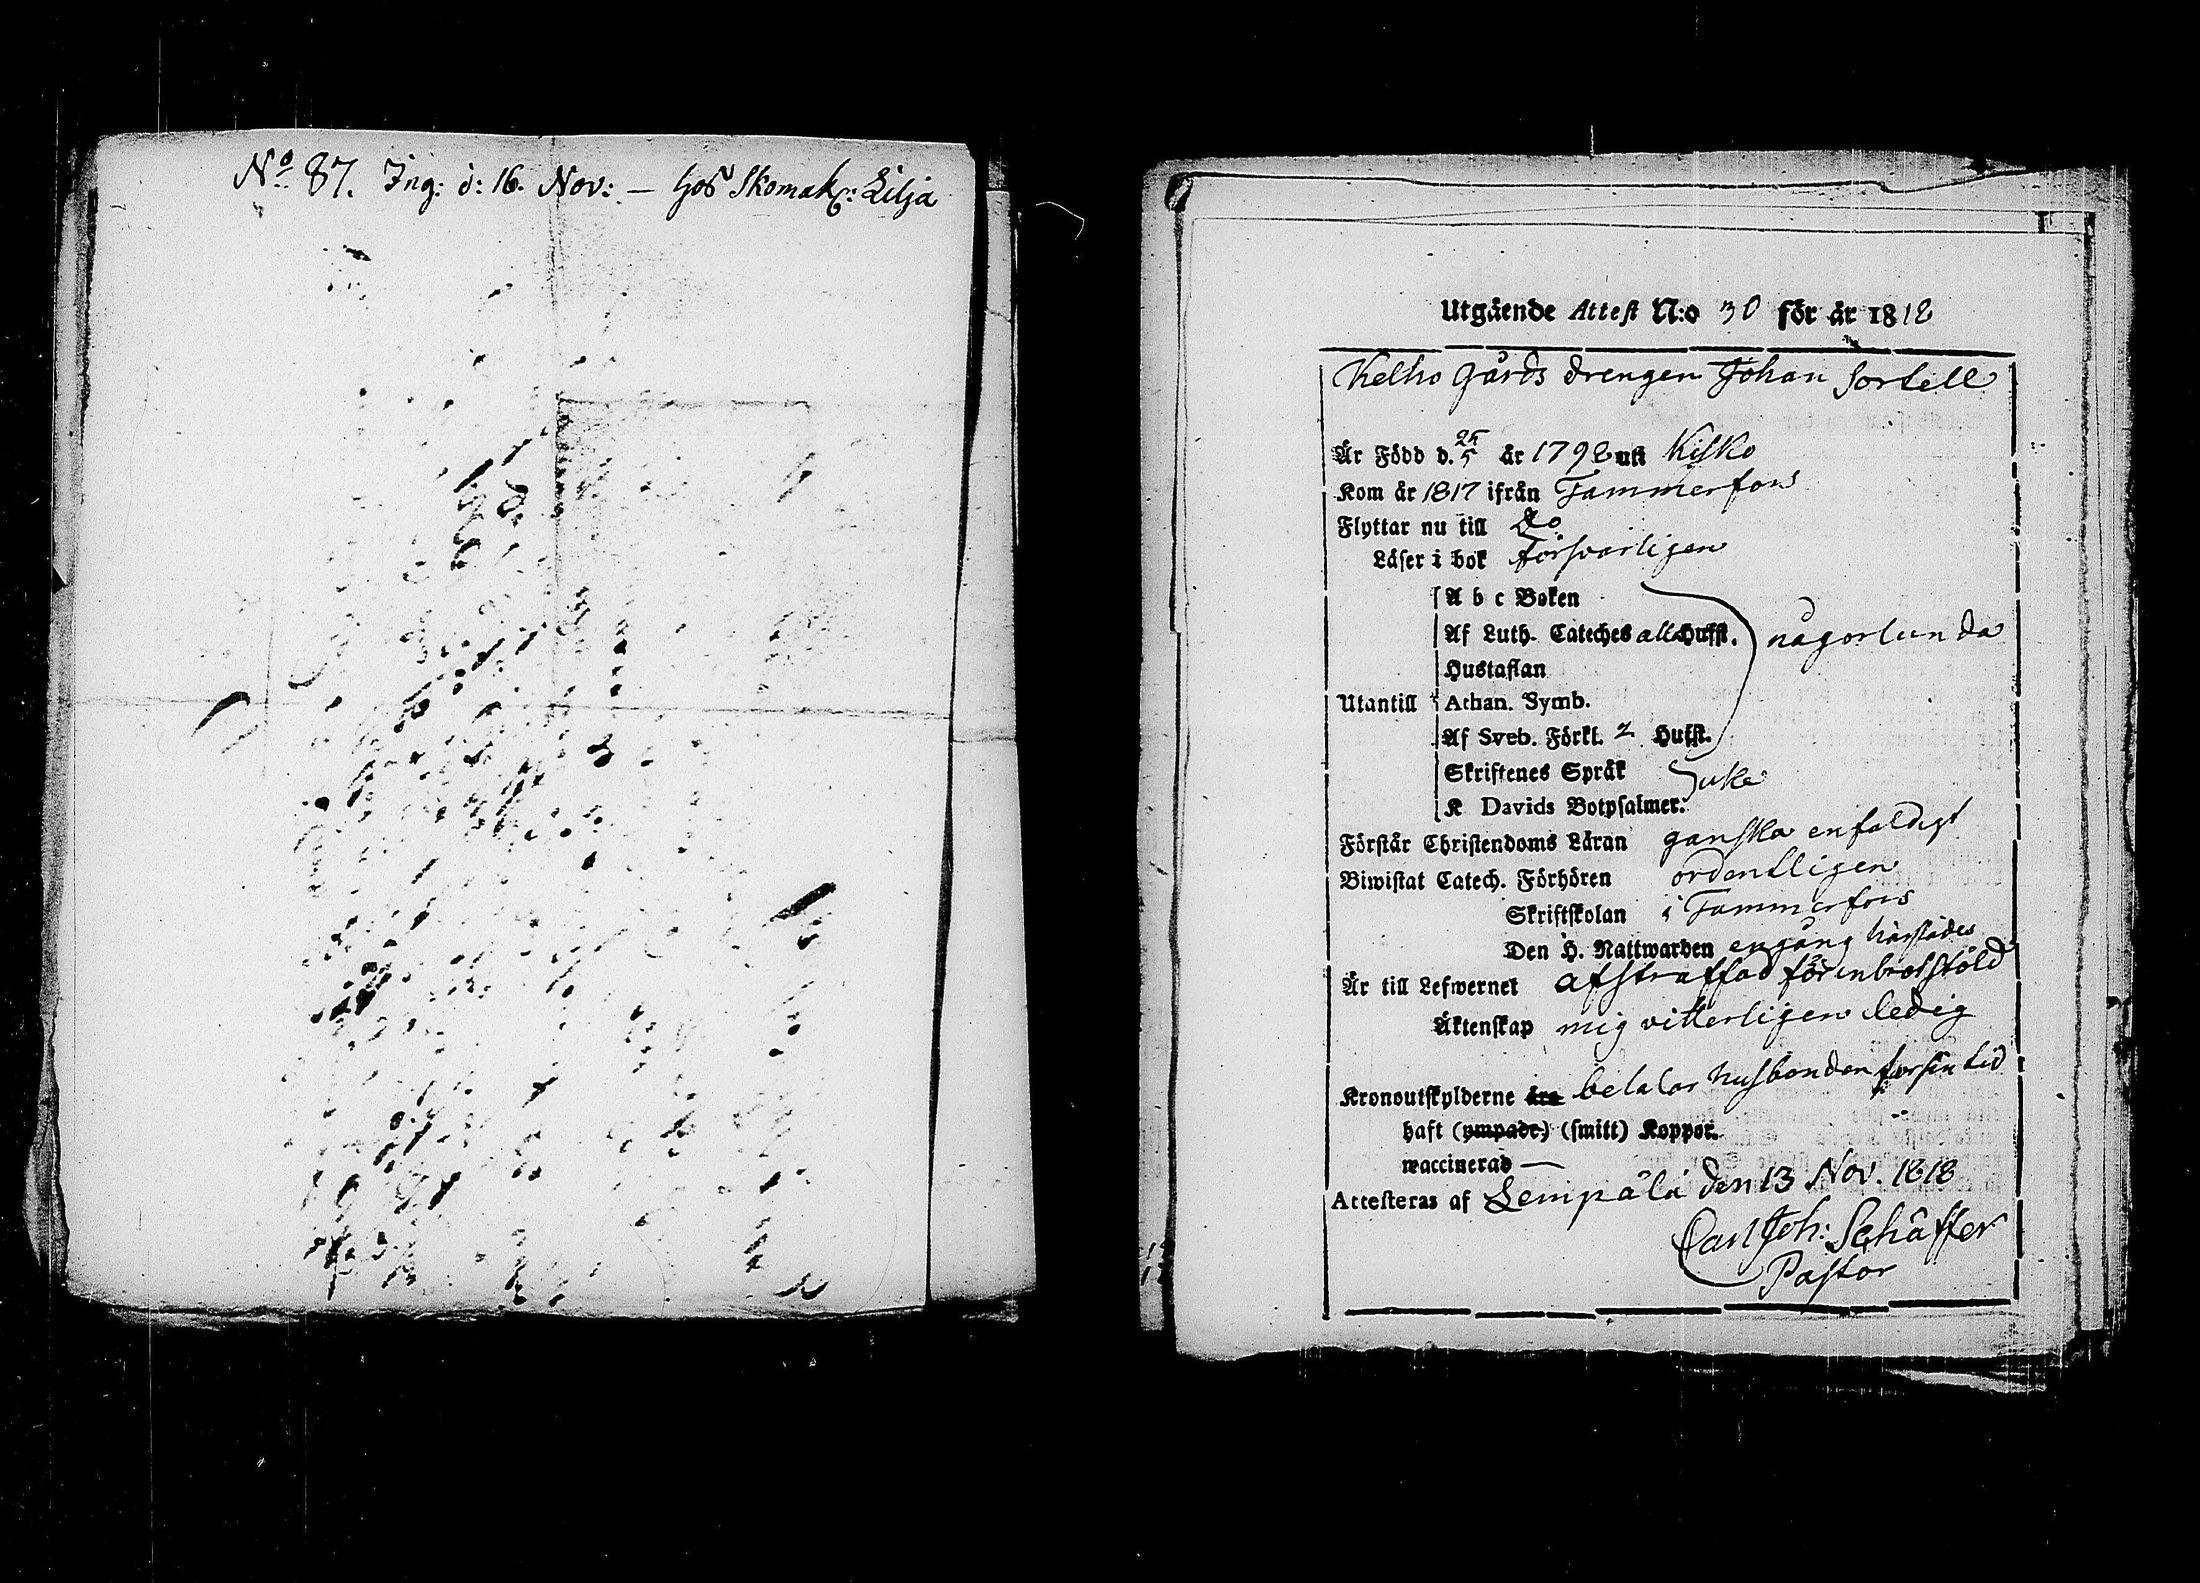 No 87. Ing: d: 16. Nov: – hos Skomak: Lilja
Utgående Attest N:o 30 för år 1818
Kelho Gårds drengen Johan Sortell
Är Född d. 25/5 år 1798 uti Kisko
Kom år 1817 ifrån Tammerfors
Flyttar nu till Do
Läser i bok försvarligen
A b c Boken
Af Luth. Cateches alla Hufst. någorlunda
Hustaflan
Utantill Athan. Symb.
Af Sveb. Förkl. 2 Hufst.
Skriftenes Språk
K Davids Botpsalmer. icke
Förstår Christendoms Läran ganska enfaldigt
Biwistat Catech. Förhören ordentligen
Skriftskolan i Tammerfors
Den H. Nattwarden engång härstädes
Är till Lefwernet afstraffad för inbrotsstöld
Äktenskap mig vitterligen ledig
Kronoutskylderne äro betalar husbonden för sin tid
haft (ympade) (smitt) Koppor.
waccinerad —
Attesteras af Lempälä den 13 Nov. 1818
Carl Joh: Schäffer
Pastor